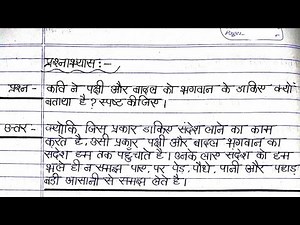 प्रश्नाभ्यास :-
प्रश्न - कवि ने पक्षी और बादल को भगवान के डाकिए क्यों
बताया है ? स्पष्ट कीजिए ।
उत्तर - क्योंकि जिस प्रकार डाकिए संदेश लाने का काम
करते है, उसी प्रकार पक्षी और बादल भगवान का
संदेश हम तक पहुँचाते है । उनके लाए संदेश को हम
भले ही न समझ पाए, पर पेड़, पौधे, पानी और पहाड़
बड़ी आसानी से समझ लेते है ।